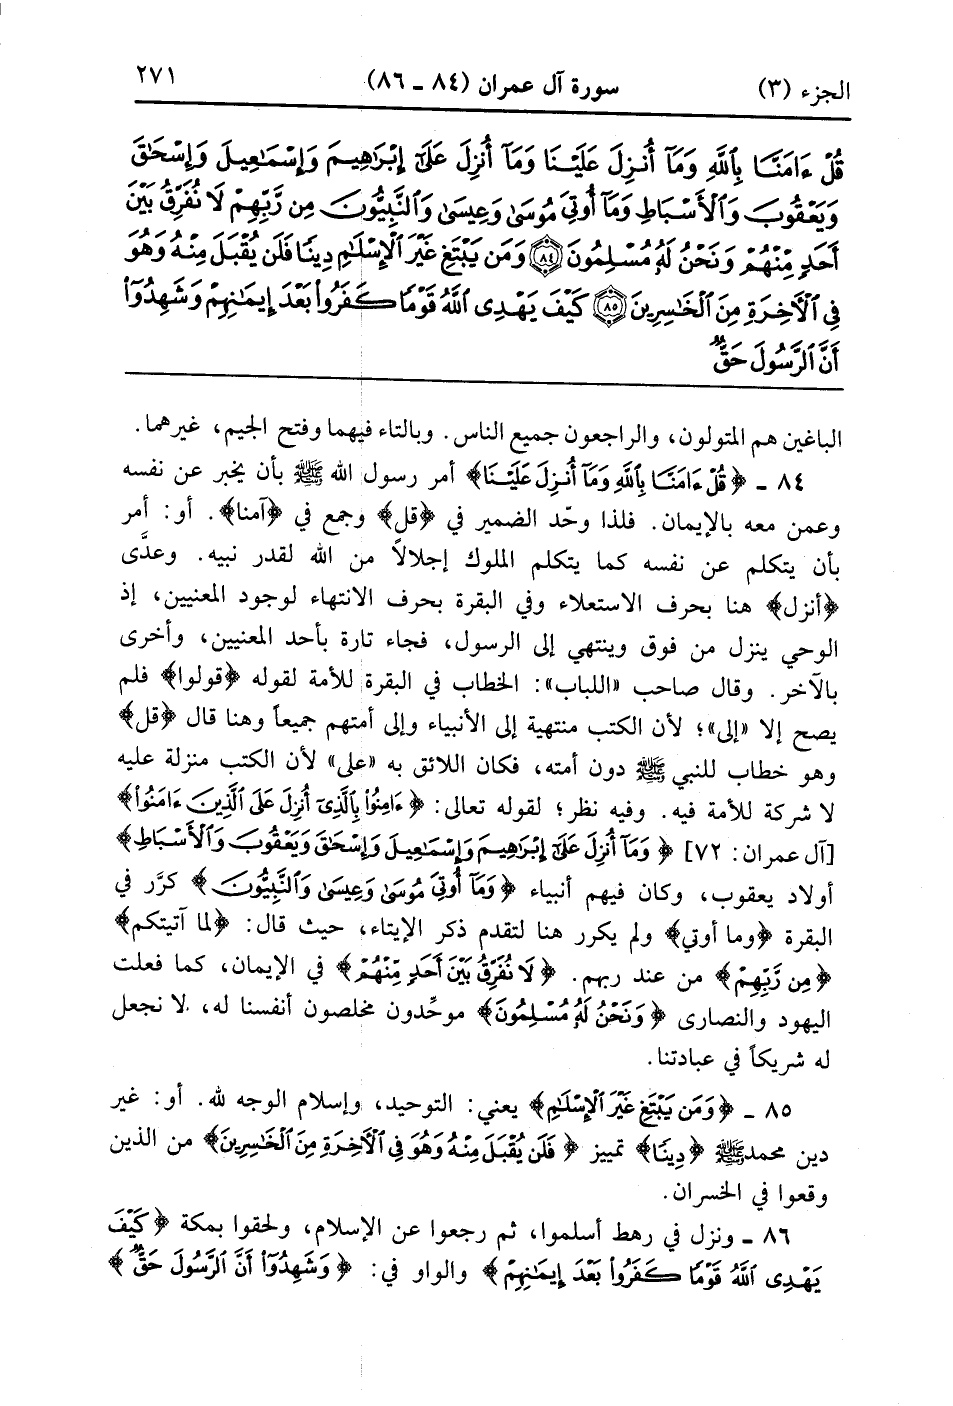 الجزء (٣)
سورة آل عمران (٨٤ ـ ٨٦)
٢٧١
قُلْ ءَامَنَّا بِٱللَّهِ وَمَآ أُنزِلَ عَلَيْنَا وَمَآ أُنزِلَ عَلَىٰٓ إِبْرَٰهِيمَ وَإِسْمَٰعِيلَ وَإِسْحَٰقَ
وَيَعْقُوبَ وَٱلْأَسْبَاطِ وَمَآ أُوتِيَ مُوسَىٰ وَعِيسَىٰ وَٱلنَّبِيُّونَ مِن رَّبِّهِمْ لَا نُفَرِّقُ بَيْنَ
أَحَدٍ مِّنْهُمْ وَنَحْنُ لَهُۥ مُسْلِمُونَ ﴿٨٤﴾ وَمَن يَبْتَغِ غَيْرَ ٱلْإِسْلَٰمِ دِينًا فَلَن يُقْبَلَ مِنْهُ وَهُوَ
فِي ٱلْأَخِرَةِ مِنَ ٱلْخَٰسِرِينَ ﴿٨٥﴾ كَيْفَ يَهْدِى ٱللَّهُ قَوْمًا كَفَرُوا۟ بَعْدَ إِيمَٰنِهِمْ وَشَهِدُوٓا۟
أَنَّ ٱلرَّسُولَ حَقٌّ
الباغين هم المتولون، والراجعون جميع الناس. وبالتاء فيهما وفتح الجيم، غيرهما.
٨٤ ـ ﴿قُلْ ءَامَنَّا بِٱللَّهِ وَمَآ أُنزِلَ عَلَيْنَا﴾ أمر رسول الله ﷺ بأن يخبر عن نفسه
وعمن معه بالإيمان. فلذا وحّد الضمير في ﴿قل﴾ وجمع في ﴿آمنا﴾. أو: أمر
بأن يتكلم عن نفسه كما يتكلم الملوك إجلالاً من الله لقدر نبيه. وعدَّى
﴿أنزل﴾ هنا بحرف الاستعلاء وفي البقرة بحرف الانتهاء لوجود المعنيين، إذ
الوحي ينزل من فوق وينتهي إلى الرسول، فجاء تارة بأحد المعنيين، وأخرى
بالآخر. وقال صاحب «اللباب»: الخطاب في البقرة للأمة لقوله ﴿قولوا﴾ فلم
يصح إلا «إلى»؛ لأن الكتب منتهية إلى الأنبياء وإلى أمتهم جميعاً وهنا قال ﴿قل﴾
وهو خطاب للنبي ﷺ دون أمته، فكان اللائق به «على» لأن الكتب منزلة عليه
لا شركة للأمة فيه. وفيه نظر؛ لقوله تعالى: ﴿ءَامِنُوا۟ بِٱلَّذِىٓ أُنزِلَ عَلَى ٱلَّذِينَ ءَامَنُوا۟﴾
[آل عمران: ٧٢] ﴿وَمَآ أُنزِلَ عَلَىٰٓ إِبْرَٰهِيمَ وَإِسْمَٰعِيلَ وَإِسْحَٰقَ وَيَعْقُوبَ وَٱلْأَسْبَاطِ﴾
أولاد يعقوب، وكان فيهم أنبياء ﴿وَمَآ أُوتِيَ مُوسَىٰ وَعِيسَىٰ وَٱلنَّبِيُّونَ﴾ كرَّر في
البقرة ﴿وما أوتي﴾ ولم يكرر هنا لتقدم ذكر الإيتاء، حيث قال: ﴿لما آتيتكم﴾
﴿مِن رَّبِّهِمْ﴾ من عند ربهم. ﴿لَا نُفَرِّقُ بَيْنَ أَحَدٍ مِّنْهُمْ﴾ في الإيمان، كما فعلت
اليهود والنصارى ﴿وَنَحْنُ لَهُۥ مُسْلِمُونَ﴾ موحِّدون مخلصون أنفسنا له، لا نجعل
له شريكاً في عبادتنا.
٨٥ ـ ﴿وَمَن يَبْتَغِ غَيْرَ ٱلْإِسْلَٰمِ﴾ يعني: التوحيد، وإسلام الوجه لله. أو: غير
دين محمد ﷺ ﴿دِينًا﴾ تمييز ﴿فَلَن يُقْبَلَ مِنْهُ وَهُوَ فِي ٱلْأَخِرَةِ مِنَ ٱلْخَٰسِرِينَ﴾ من الذين
وقعوا في الخسران.
٨٦ ـ ونزل في رهط أسلموا، ثم رجعوا عن الإسلام، ولحقوا بمكة ﴿كَيْفَ
يَهْدِى ٱللَّهُ قَوْمًا كَفَرُوا۟ بَعْدَ إِيمَٰنِهِمْ﴾ والواو في: ﴿وَشَهِدُوٓا۟ أَنَّ ٱلرَّسُولَ حَقٌّ﴾